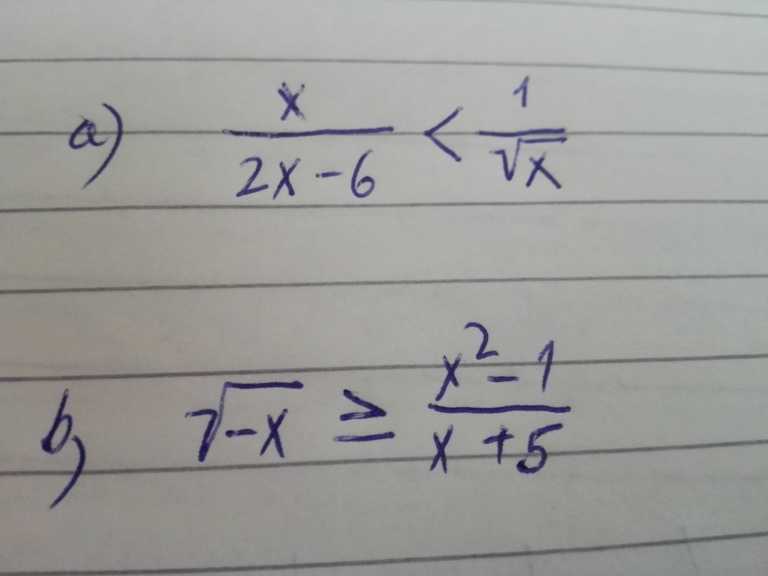 a) x/(2x-6) < 1/√x
b) √-x ≥ (x²-1)/(x+5)